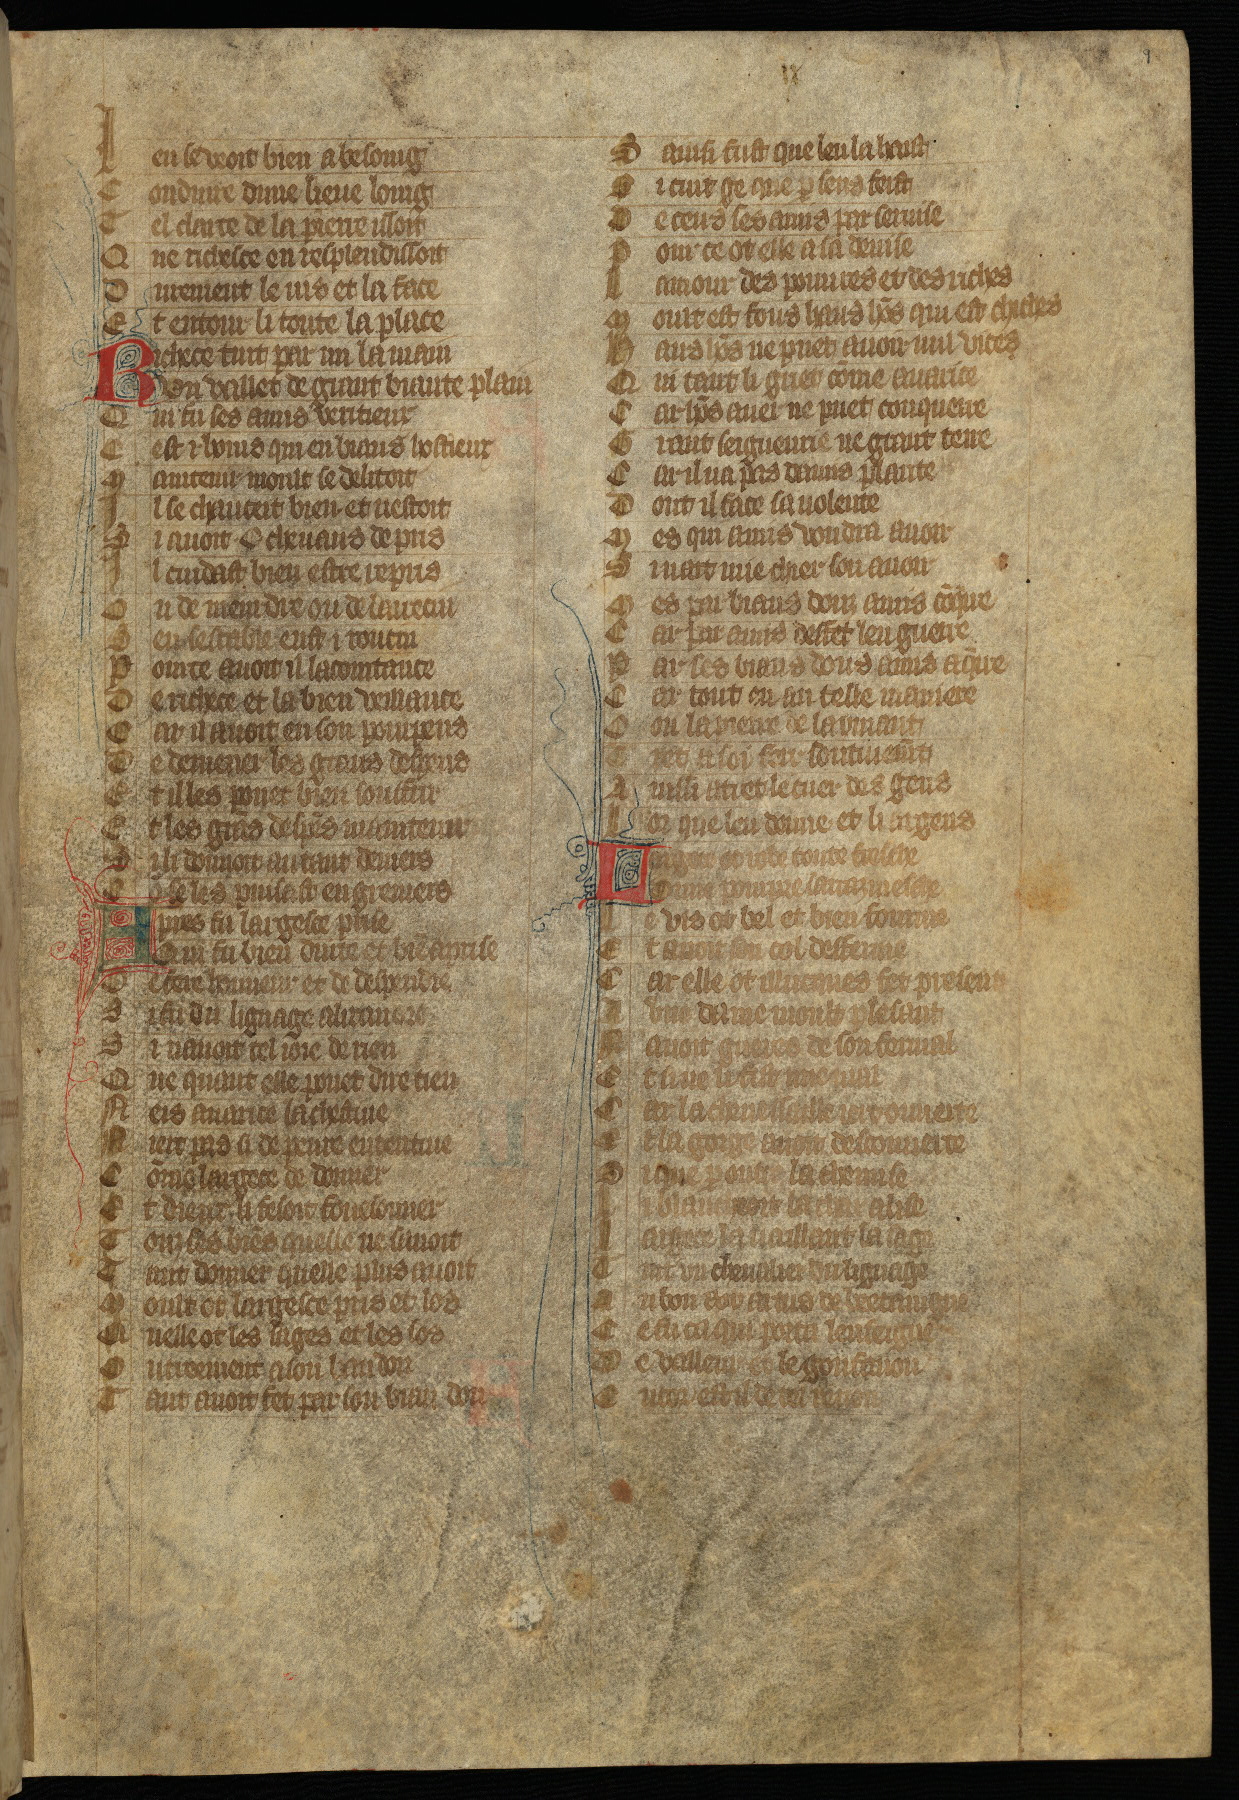 IX
9
L en se veoit bien a besoing
C onduire dune lieue loing
T el clarte de la pierre issoit
Q ue richesce en resplendissoit
D urement le vis et la face
E t entour li toute la place
Richece tint par mi la main
Vn vallet de grant biaute plain
Q ui fu ses amis veritieux
C est .i. homs qui en biaus hostieux
M aintenir moult se delitoit
I l se chaucoit bien et vestoit
S i auoit chevaus de pris
I l cuidast bien estre repris
O u de meurdre ou de larrecin
S en sestable eust .i. roucin
P our ce auoit il lacointance
D e richece et la bien veillance
C ar il auoit en son pourpens
D e demener les grans despens
E t il les pouet bien souffrir
E t les grãs despẽs maintenir
S i li donnoit autant deniers
C õ se les puisast en greniers
Apres fu largesce prise
Qui fu bien duite et biẽ aprise
D e fere honneur et de despendre
S i fu du lignage alixandre
S i nauoit tel ioie de rien
Q ue quant elle pouet dire tien
N eis auarice la chetiue
N iert pas si de penre ententiue
C õme largece de donner
E t dieux li fesoit foisonner
T ouz ses biẽs quelle ne sauoit
T ant donner quelle plus auoit
M oult ot largesce pris et los
Q uelle ot les sages et les fos
O utreement a son bandon
T ant auoit fet par son biau don
S ainsi fust que len la haist
S i cuit ge que p sens feist
D e ceus ses amis par seruise
P our ce ot elle a sa deuise
L amour des poures et des riches
M oult est fous haus hõs qui est chiches
H aus hõs ne puet auoir nul vices
Q ui tant li griet come auarice
C ar hõs auer ne puet conquerre
G i rant seigneurie ne grant terre
C ar il na pas damis plante
D ont il face sa volente
M es qui amis voudra auoir
S i nait mie chier son auoir
M es par biaus dons amis
C ar par
P ar ses biaus dons amis
C ar tout en au telle maniere
C ou la pierre de laymant
T ret a soi fer soutiuemẽt
A inssi atret le cuer des gens
L or que len donne et li argens
Largece ot robe toute fresche
L e vis ot bel et bien fourme
E t auoit son col deffermé
C ar elle ot illecques fet present
A vne dame moult plesant
N auoit gueres de son fermal
E t si ne li
C ar la cheuessaille iert ouuerte
E t la gorge auoit descouuerte
S i que p outre la chemise
L i blancheoit la char alise
L argece la vaillant la sage
T int vn cheualier du lignage
A u bon roy artus de bretaingne
C e fu cil qui porta lenseigne
D e valleur et le gonfanon
E ncor est il de tel renon